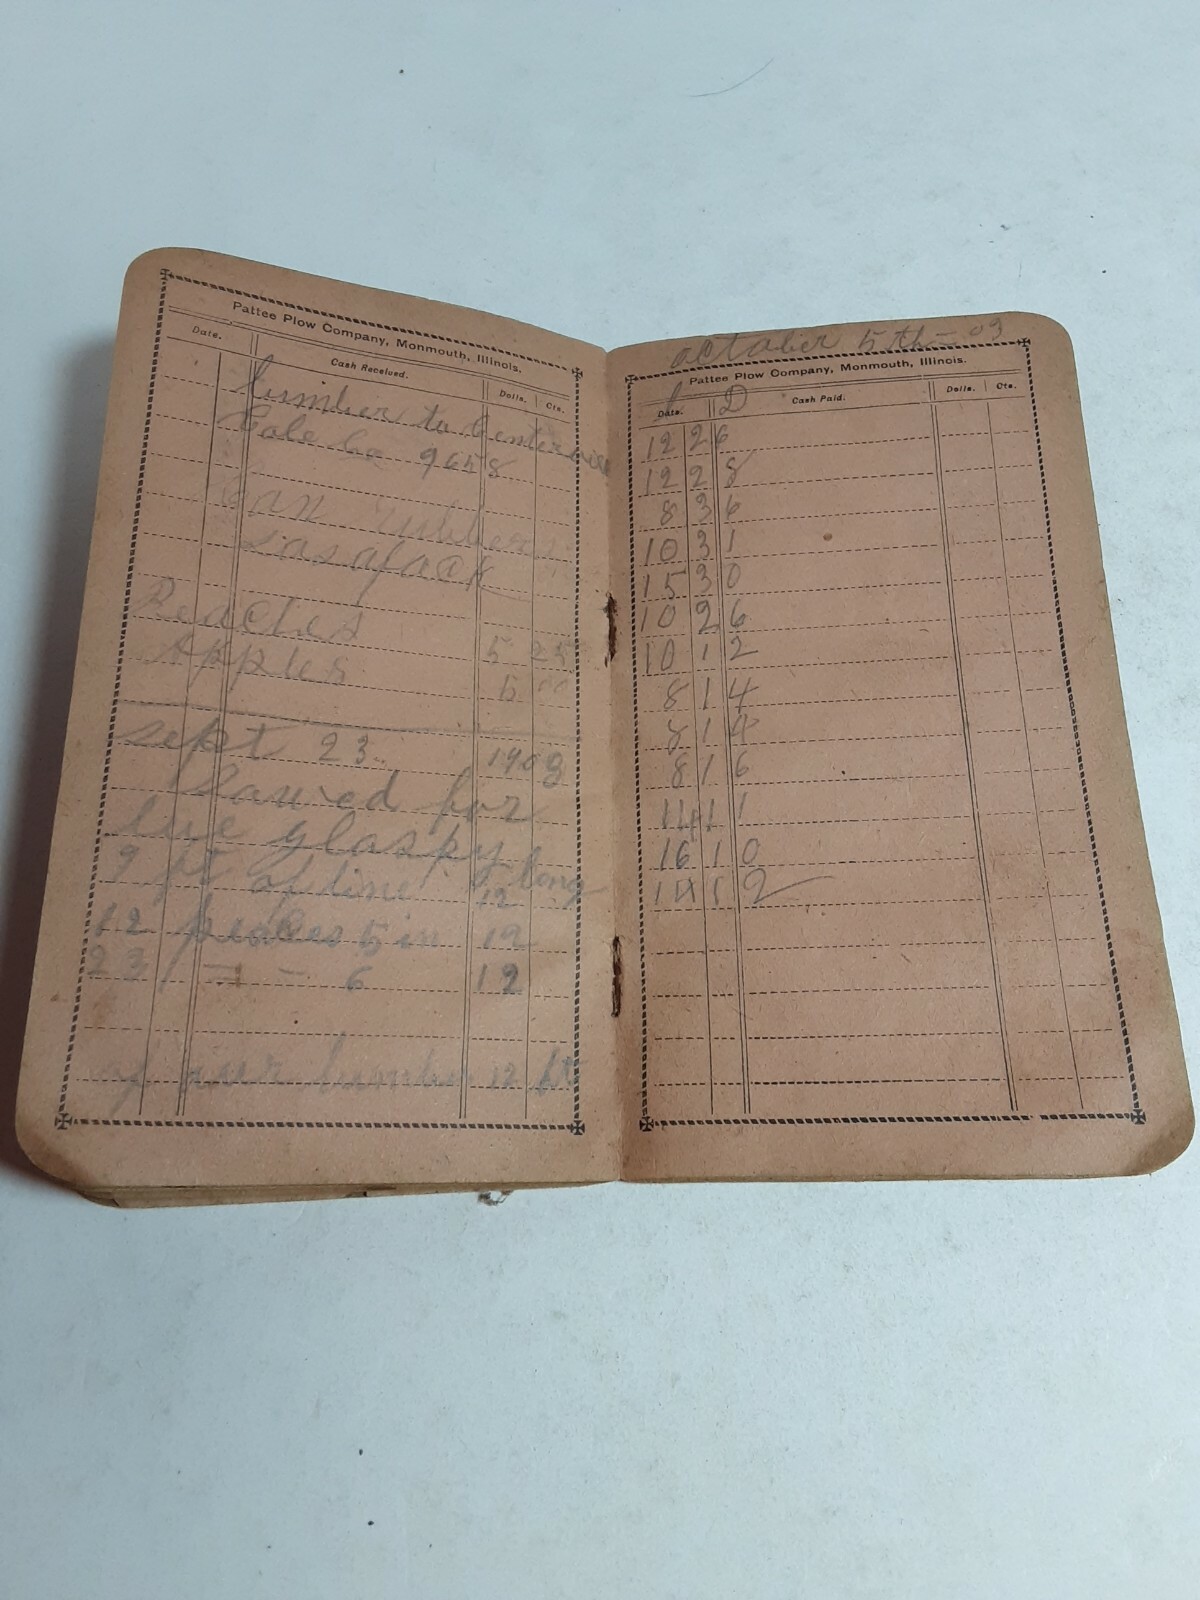 Pattee Plow Company, Monmouth, Illinois.
Date. Cash Received. Dolls. Cts.
Lumber to Centervill
Cole Co 9658
Rubbers
Sasafack
Peaches 5 25
Apples 5 00
Sept 23 1903
Sawed for
glaspy
9 ft of line 12 long
12 peaces 5 in 12
23 6 12
of our lumber 12 ft
october 5th - 03
Pattee Plow Company, Monmouth, Illinois.
Date. Cash Paid. Dolls. Cts.
L D
12 26
12 28
8 36
10 31
15 30
10 26
10 12
8 14
8 14
8 16
14 11
16 10
14 12